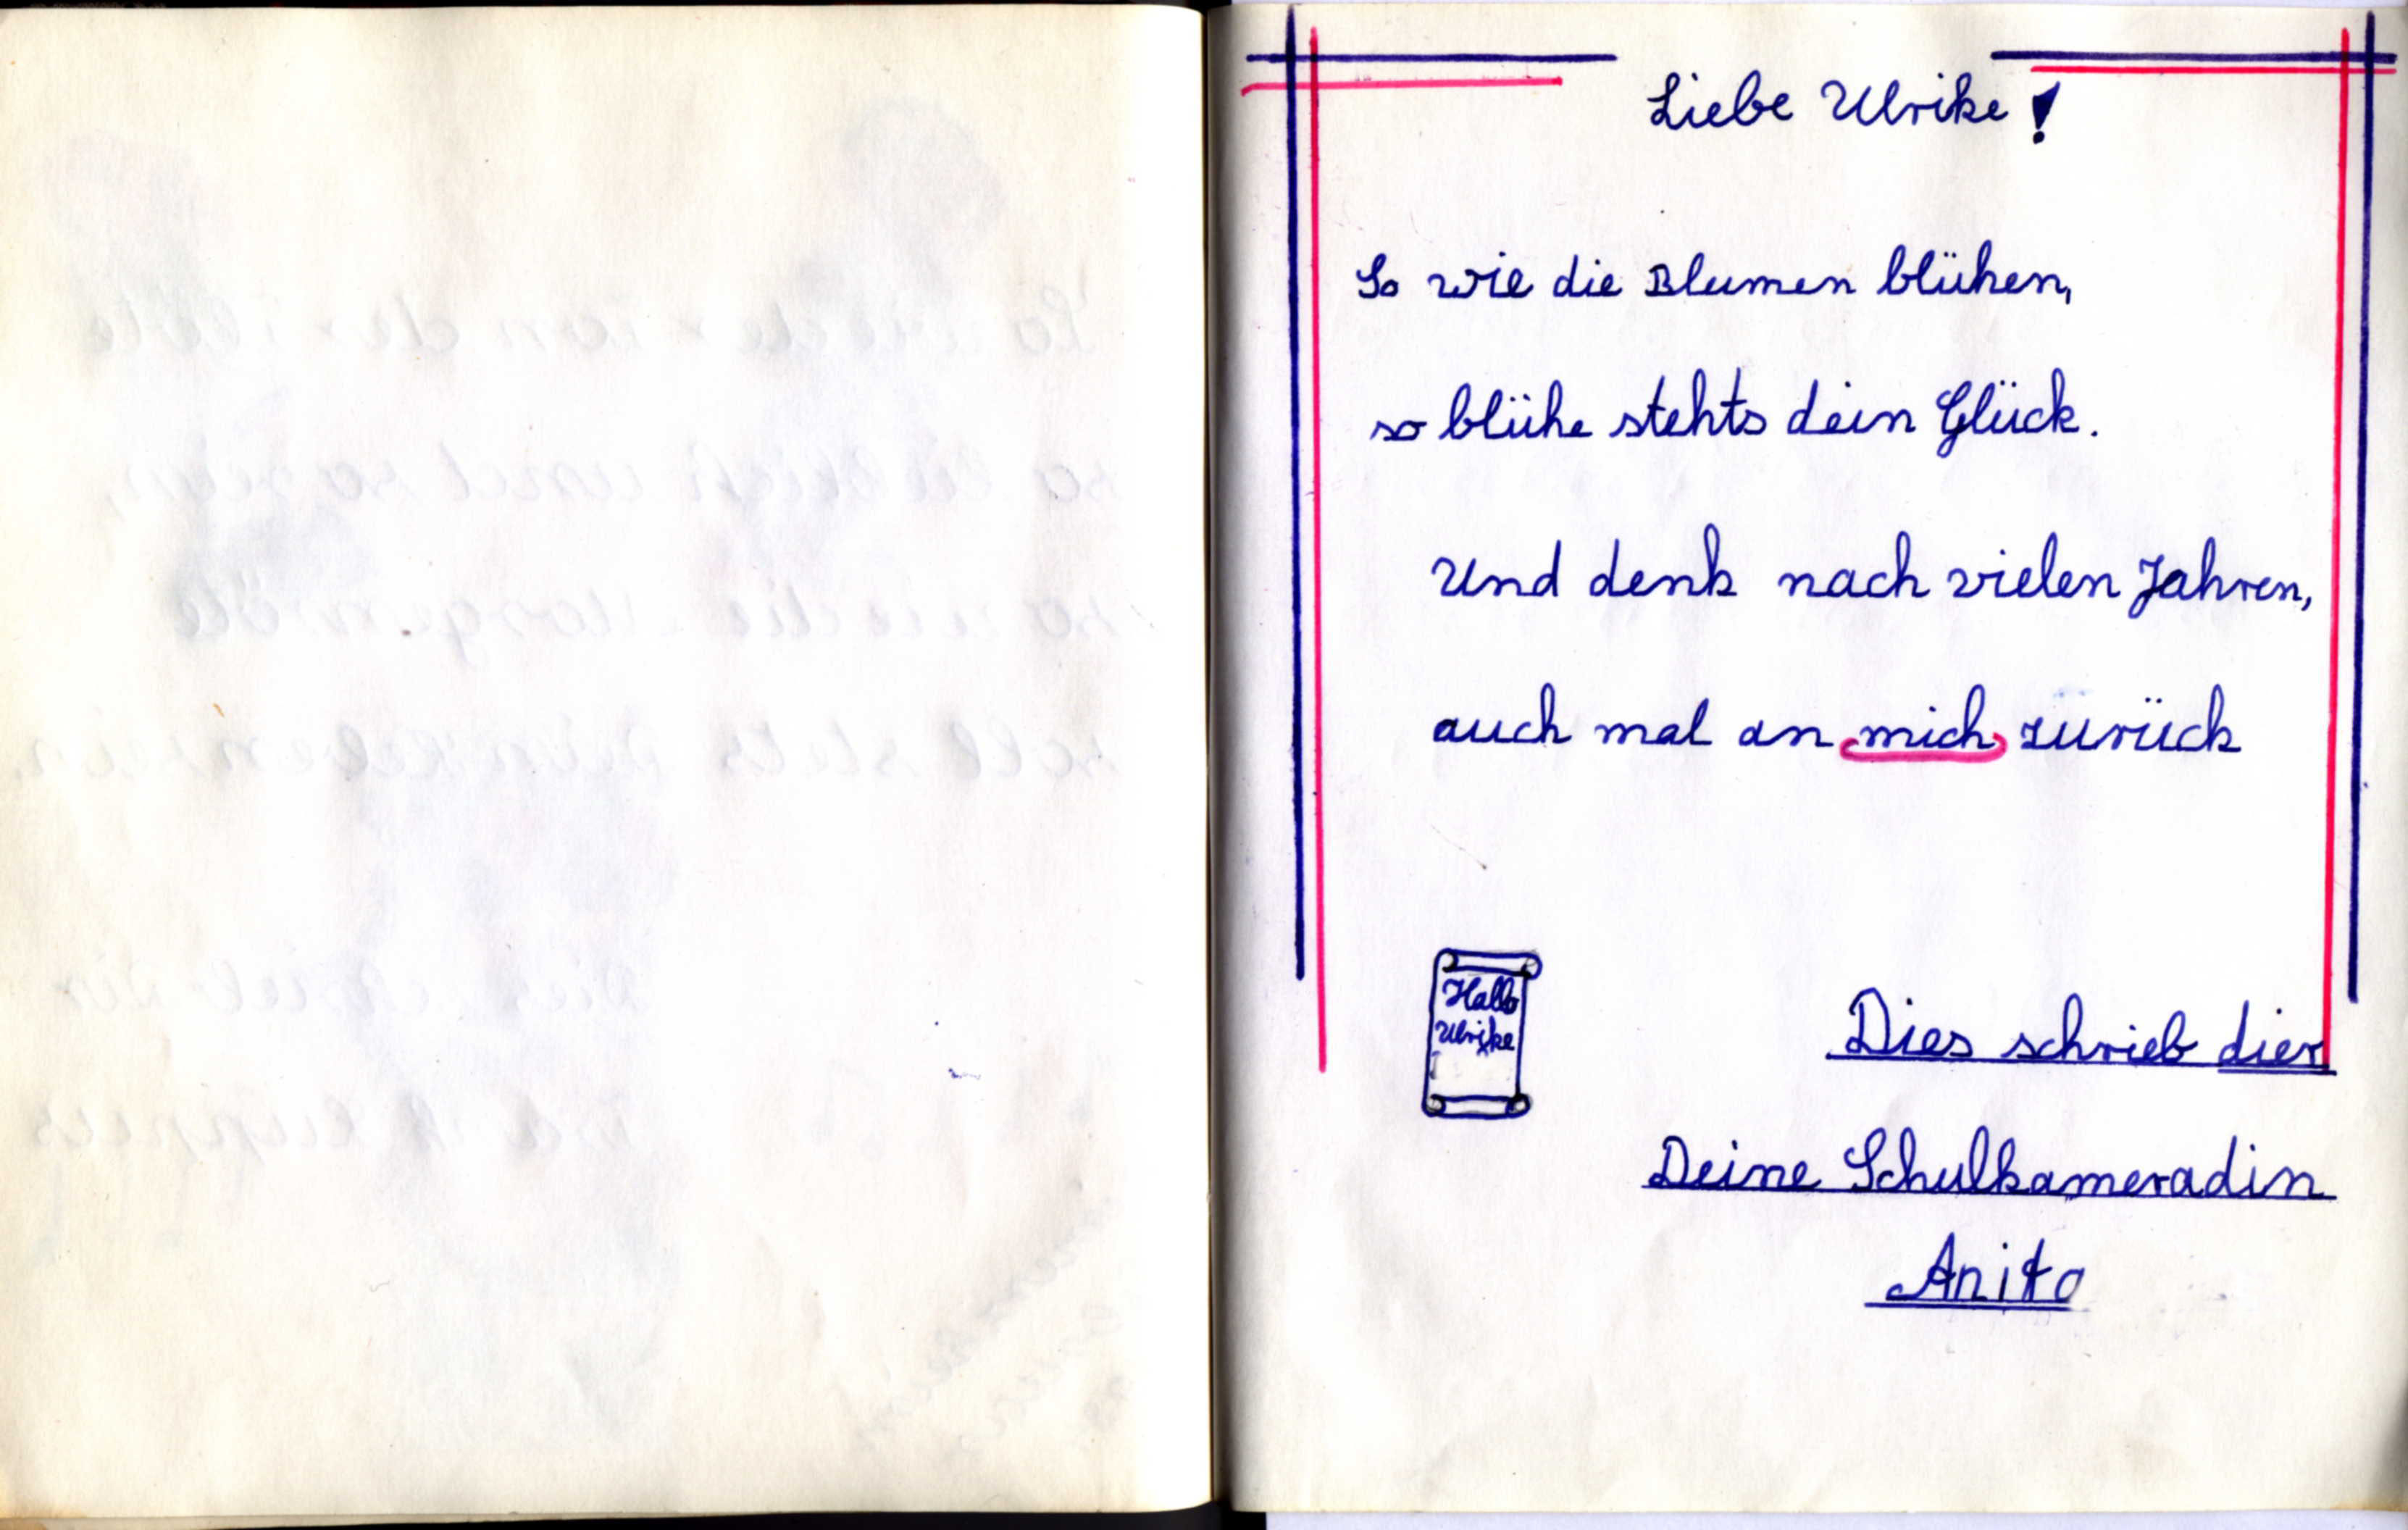 Liebe Ulrike!
So wie die Blumen blühen,
so blühe stehts dein Glück.
Und denk nach vielen Jahren,
auch mal an mich zurück
Hallo
Ulrike
Dies schrieb dier
Deine Schulkameradin
Anita